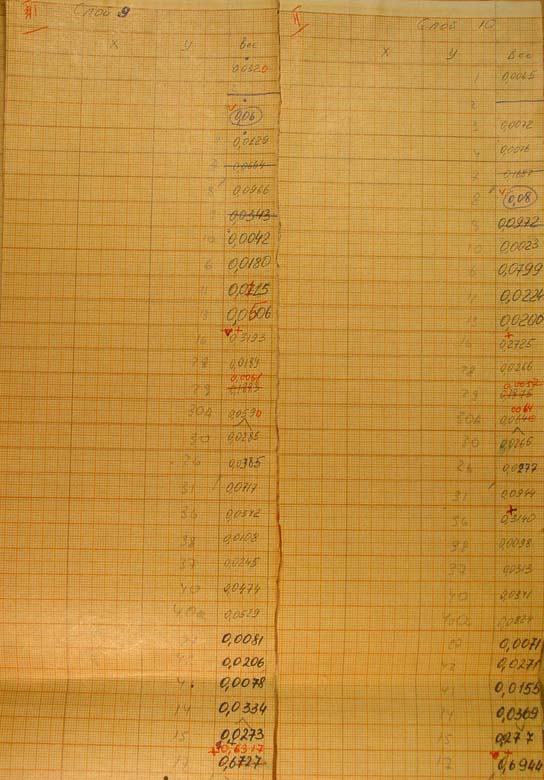 III Слой 9
X У Вес
0,0320
0,06
0,0229
0,0664
8 0,0966
0,0343
10 0,0042
6 0,0180
11 0,0115
13 0,0506
16 0,3193
28 0,0189
0,0061
29 0,1883
30А 0,0590
30 0,0285
26 0,0385
31 0,0717
36 0,0572
38 0,0108
37 0,0245
40 0,0474
40а 0,0529
0,0081
0,0206
0,0078
14 0,0334
15 0,0273
0,6317
17 0,6727
II Слой 10
X У Вес
1 0,0065
2
3 0,0072
4 0,0076
8 0,08
9 0,0972
10 0,0023
6 0,0799
11 0,0224
13 0,0200
16 0,2725
28 0,0266
0,0057
29 0,1875
0064
30А
30 0,0265
26 0,0277
31 0,0944
36 0,3140
38 0,0098
37 0,0313
40 0,0341
40а 0,0824
0,0071
42 0,0271
0,0155
14 0,0369
15 0,277
17 0,6944